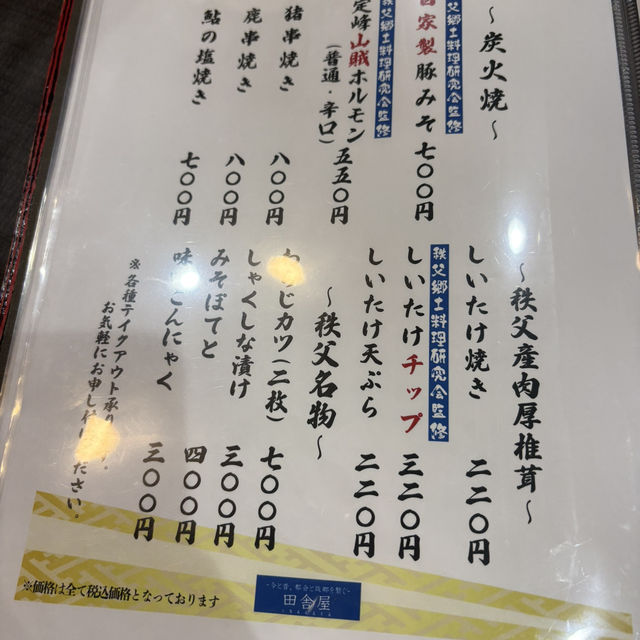 ～炭火焼～
秩父郷土料理研究会監修
自家製豚みそ 七〇〇円
秩父郷土料理研究会監修
定峰山賊ホルモン
(普通・辛口) 五五〇円
猪串焼き 八〇〇円
鹿串焼き 八〇〇円
鮎の塩焼き 七〇〇円
～秩父産肉厚椎茸～
しいたけ焼き 二二〇円
秩父郷土料理研究会監修
しいたけチップ 三二〇円
しいたけ天ぷら 二二〇円
～秩父名物～
カツ(二枚) 七〇〇円
しゃくしな漬け 三〇〇円
みそぽてと 四〇〇円
味 こんにゃく 三〇〇円
※各種テイクアウト承
お気軽にお申し ださい。
※価格は全て税込価格となっております
田舎屋